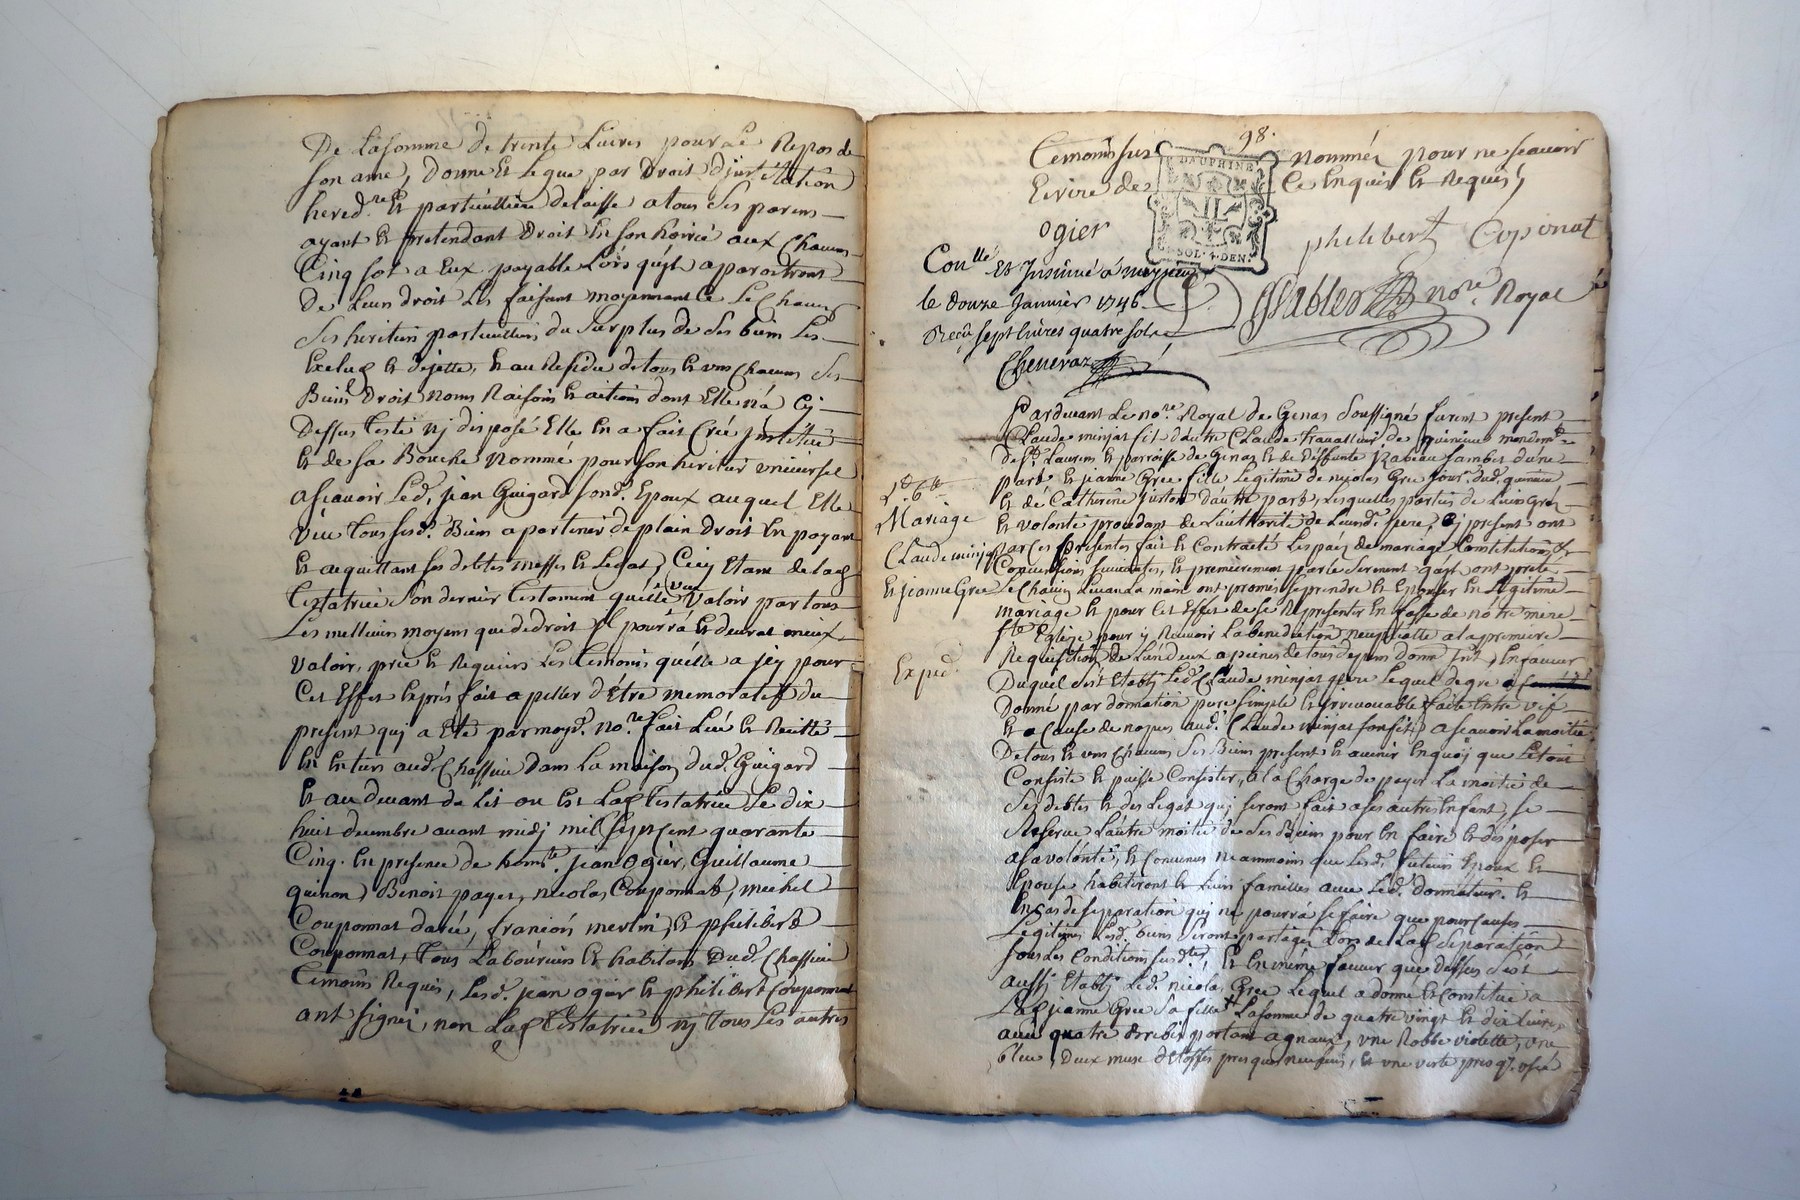 De Lasomme de trente Livres pour le Repos de
son ame, donne Et Legue par Droit d'jnstitution
hered.re Et particulliere delaisse a tous ses parens
ayant Et pretendant Droit En son hoirie aux Chacun
Cinq sol a Eux payable Lors qu'jls aparoitront
De Leur droit Les faisant moyennant ce Le Chacun
ses heritiers particulliers du surplus de ses biens Les
Exclus Et dejette, Et au Residu de tous Et uns Chacuns ses
Biens Droit noms Raisons Et actions dont Elle n'a Cy
Dessus testé nj disposé Elle En a fait Créé jnstitué
Et de sa Bouche Nomme pour son heritier universel
asçavoir Led. jean Guigard son d. Epoux auquel Elle
veut tous sesd. Biens apartenir de plain Droit En payant
Et acquittant ses debtes messes Et Legat, Cecy Etant de lad.
Testatrice son dernier testament qu'elle veut valoir par tous
Les meilleurs moyens que de droit jl pourra Et devrat mieux
valoir, prie Et Requiers Les temoins qu'elle a jcy pour
Cet Effet Exprés fait apeller d'être memoratif du
present quj a Eté par moyd. no.re fait Leu Et Recitté
En Entier aud. Chassieu dans La maison dud. Guigard
Et au devant du Lit ou Est Lad. testatrice Le dix
huit decembre avant midj mil sept Cent quarante
Cinq. En presence de hon.te jean Ogier, Guillaume
quinon, Benoit payet, nicolas Couponnat, michel
Couponnat davié, francois merlin, Et philibert
Couponnat, Tous Laboureurs Et habitans Dud. Chassieu
Temoins Requis, Lesd. jean Ogier Et philibert Couponnat
ont signés, non Lad. testatrice nj tous Les autres
98.
Temoins sus nommés pour ne sçavoir
Ecrire de Ce Enquis Et Requis
DAUPHINE
SOL. 4. DEN.
Ogier
philibert Coponat
Con.llé Et Insinué á meyzieu
le douze Janvier 1746
Reçu sept livres quatre sols
no.re Royal
Chenevaz
Pardevant Le no.re Royal de Genas soussigné furent present
Claude minjat fils d'autre Claude travailleur de quincieu mandem.t
de S.t Laurens Et parroisse de Genas Et de Deffunte jzabeau Jambet d'une
part Et jeanne Gree fille Legitime de nicolas Gree jour. dud. quincieu
Et de Catherine juston d'autre part, Lesquelles parties de Leurs gréz
Et volonté procedant de L'authorité de Leursd. peres Cj present ont
par ces presentes fait Et Contracté Les pacs de mariage Constitutions Et
Conventions suivantes, Et premierement par le serment qu'ont ont preté
Le Chacun Levant La main ont promis se prendre Et Epouser En Legitime
mariage Et pour Cet Effet de se Representer En fasse de notre mere
s.te Eglize pour y Recevoir La benediction nuptialle a la premiere
Requisition de L'un d'eux a peines de tous depens domm. Int. En faveur
Duquel s'est Etablj Led. Claude minjat pere Lequel de gre a
Donné par donnation pure simple Et irrevocable faite Entre vif
Et a Cause de nopces aud. Claude minjat son fils asçavoir La moitié
De tous Et uns Chacuns ses Biens present Et avenir En quoy que Le tout
Consiste Et puisse Consister, a la Charge de payer La moitié de
ses debtes Et des Legat quj seront fait a ses autres Enfant, se
Reserve L'autre moitié de ses Biens pour En faire Et disposer
a sa volonté, Et Convenus neammoins que Lesd. futturs Epoux Et
Epouse habiteront Et Leurs familles avec Led. donnateur. Et
En Cas de separation quj ne pourra se faire que pour Causes
Legitimes Lesd. biens seront partagés Lors de Lad. separation
sous Les Conditions susd.tes, Et En même faveur que Dessus s'est
aussj Etablj Led. nicolas Gree Lequel a donné Et Constitué a
Lad. jeanne Gree sa fille Lasomme de quatre vingt Et dix Livres
avec quatre Brebis portant agneaux, une Robbe violette, une
bleu, Deux muse d'Etoffes presque neufves, Et une verte presq. usée
1.re 6.te
Mariage
Claude minjat
Et jeanne Gree
Exped.